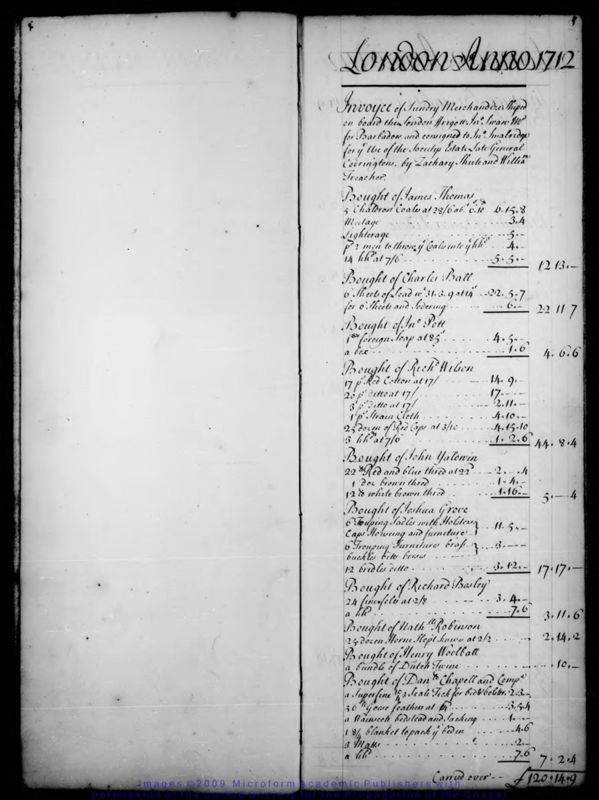 London Anno 1712
Invoyce of Sundry Merchandizes Shiped
on board the London Frigott Jno. Swan Mr
for Barbados and consigned to Jno. Smalridge
for ye Use of the Societys Estate Late General
Codringtons, by Zachary Shute and William
Treacher.
Bought of James Thomas
5 Chaldron Coales at 28/6 6.15.8
Meetage 3.4
Lighterage 5.-
pd 2 men to throw ye Coales into ye hhds 4.-
14 hhds at 7/6 5.5.- 12 13.-
Bought of Charles Ball
6 Sheets of Lead wt. 31.3.9 at 14s 22.5.7
for 6 Sheets and Sodering 6.- 22 11 7
Bought of Jno Pott
foreign Soap at 85s 4.5.-
a box 1.6 4.6.6
Bought of Richd Wilson
17 ps Red Cotton at 17/ 14.9.-
20 ps ditto at 17/ 17.-
3 ps ditto at 17/ 2.11.-
1 ps Strain Cloth 4.10.-
25 dozen of Red Caps at 3/10 4.15.10
3 hhds at 7/6 1.2.6 44.8.4
Bought of John Yalowin
22 lb Red and blue thred at 22d 2.-.4
1 doz brown thred 1.4.-
12 lb white brown thred 1.16.- 5.-4
Bought of Joshua Grove
6 Trouping Sadles with Holsters
Caps Howsing and furniture 11.5.-
6 Trouping Furnitures brass
buckles bitts bosses 3.-
12 bridles ditto 3.12.- 17.17.-
Bought of Richard Basley
24 at 2/8 3.4.-
a hhd 7.6 3.11.6
Bought of Nathll Robinson
25 dozen Horne Hept knives at 2/2 2.14.2
Bought of Henry Woolball
a bundle of Dutch Twine -.10.-
Bought of Danll Chapell and Compa
a Superfine Scale Tick for bed & bolster 2.3-
56 lb Goose feathers at 3.5.4
a Wainscott bedstead and Sacking 1.-
1 8/4 blanket to pack ye bed in 4.6
3 Matts 2.-
a hhd 7.6 7.2.4
Carried over £120.14.9
Images ©2009 Microform Academic Publishers with